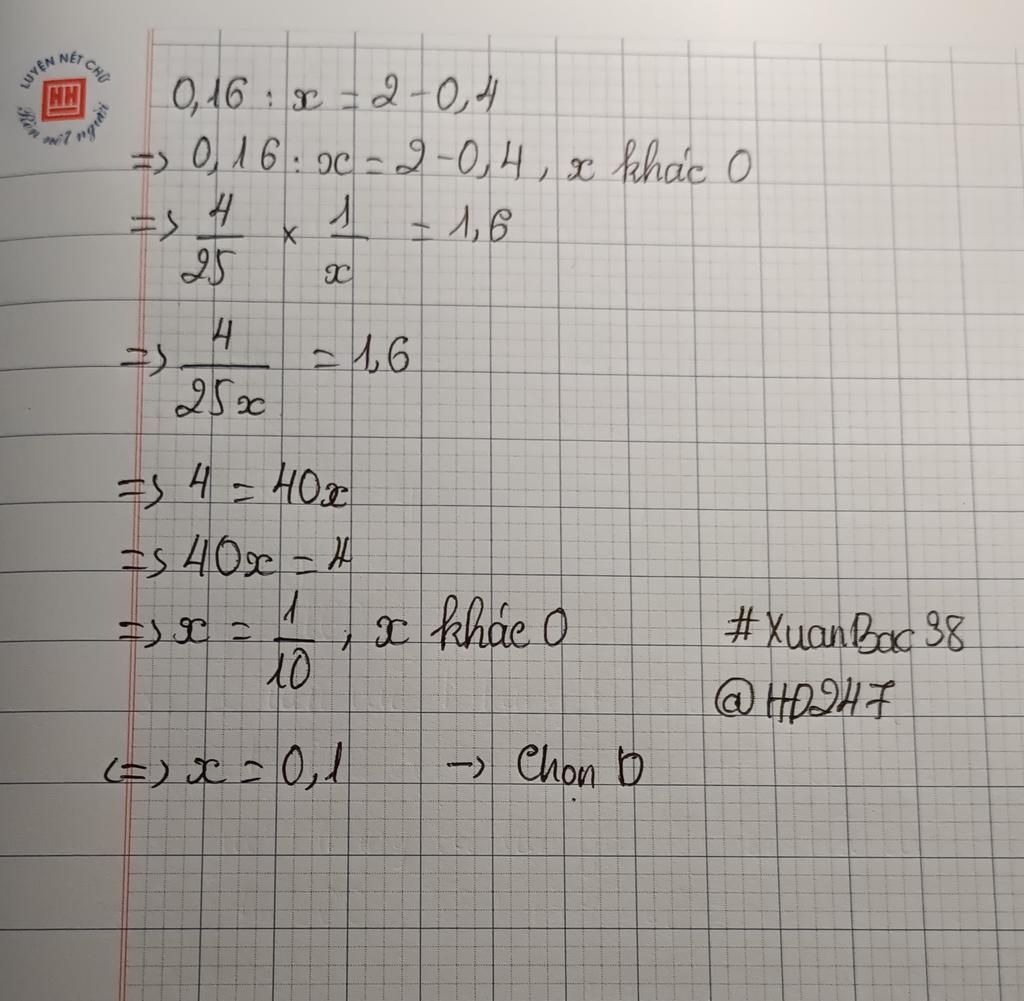 LUYỆN NÉT CHỮ
HH
Rèn nết người
0,16 : x = 2 - 0,4
=> 0,16 : x = 2 - 0,4, x khác 0
=> 4/25 × 1/x = 1,6
=> 4/25x = 1,6
=> 4 = 40x
=> 40x = 4
=> x = 1/10, x khác 0
#XuanBac98
@HD247
<=> x = 0,1 -> Chọn D